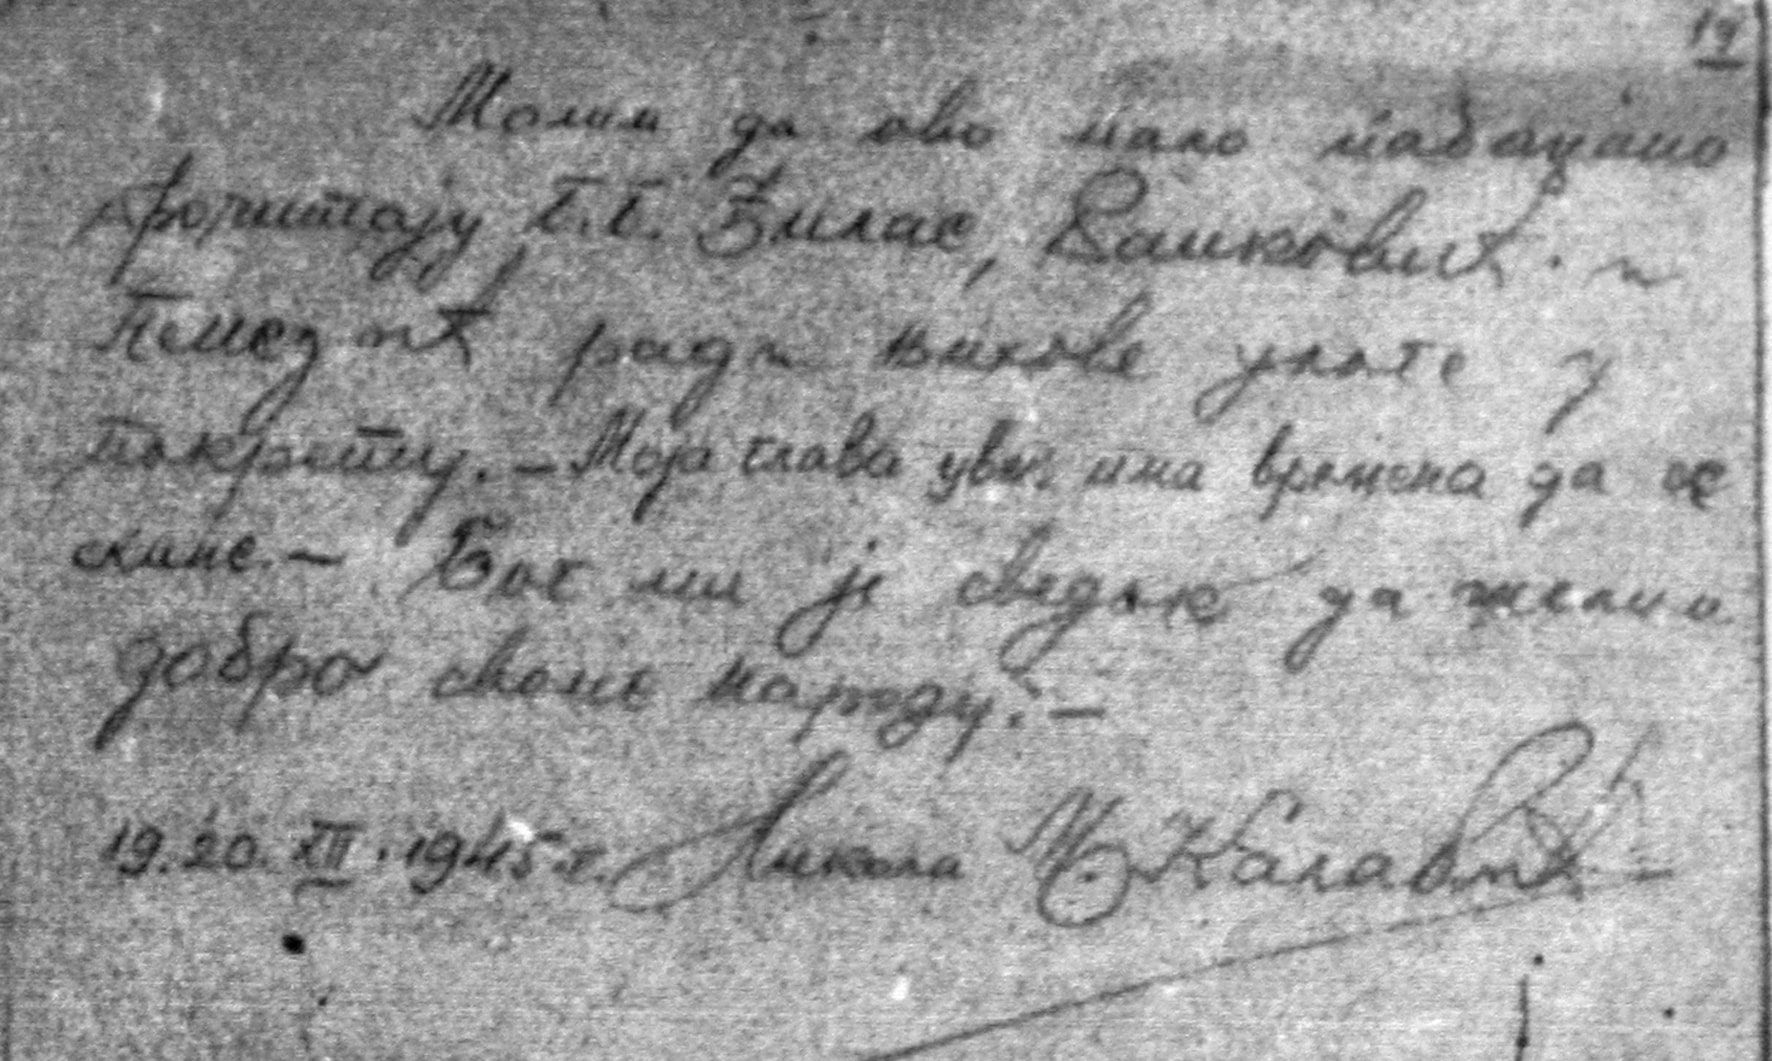 19
Молим да ово мало набацано
прочитају г.г. Ђилас, Ранковић и
Пенезић ради њихове улоге у
покрету. – Моја глава увек има времена да се
скине. – Бог ми је сведок да желим
добро своме народу. –
19.20. XII. 1945 г. Никола М. Калабић